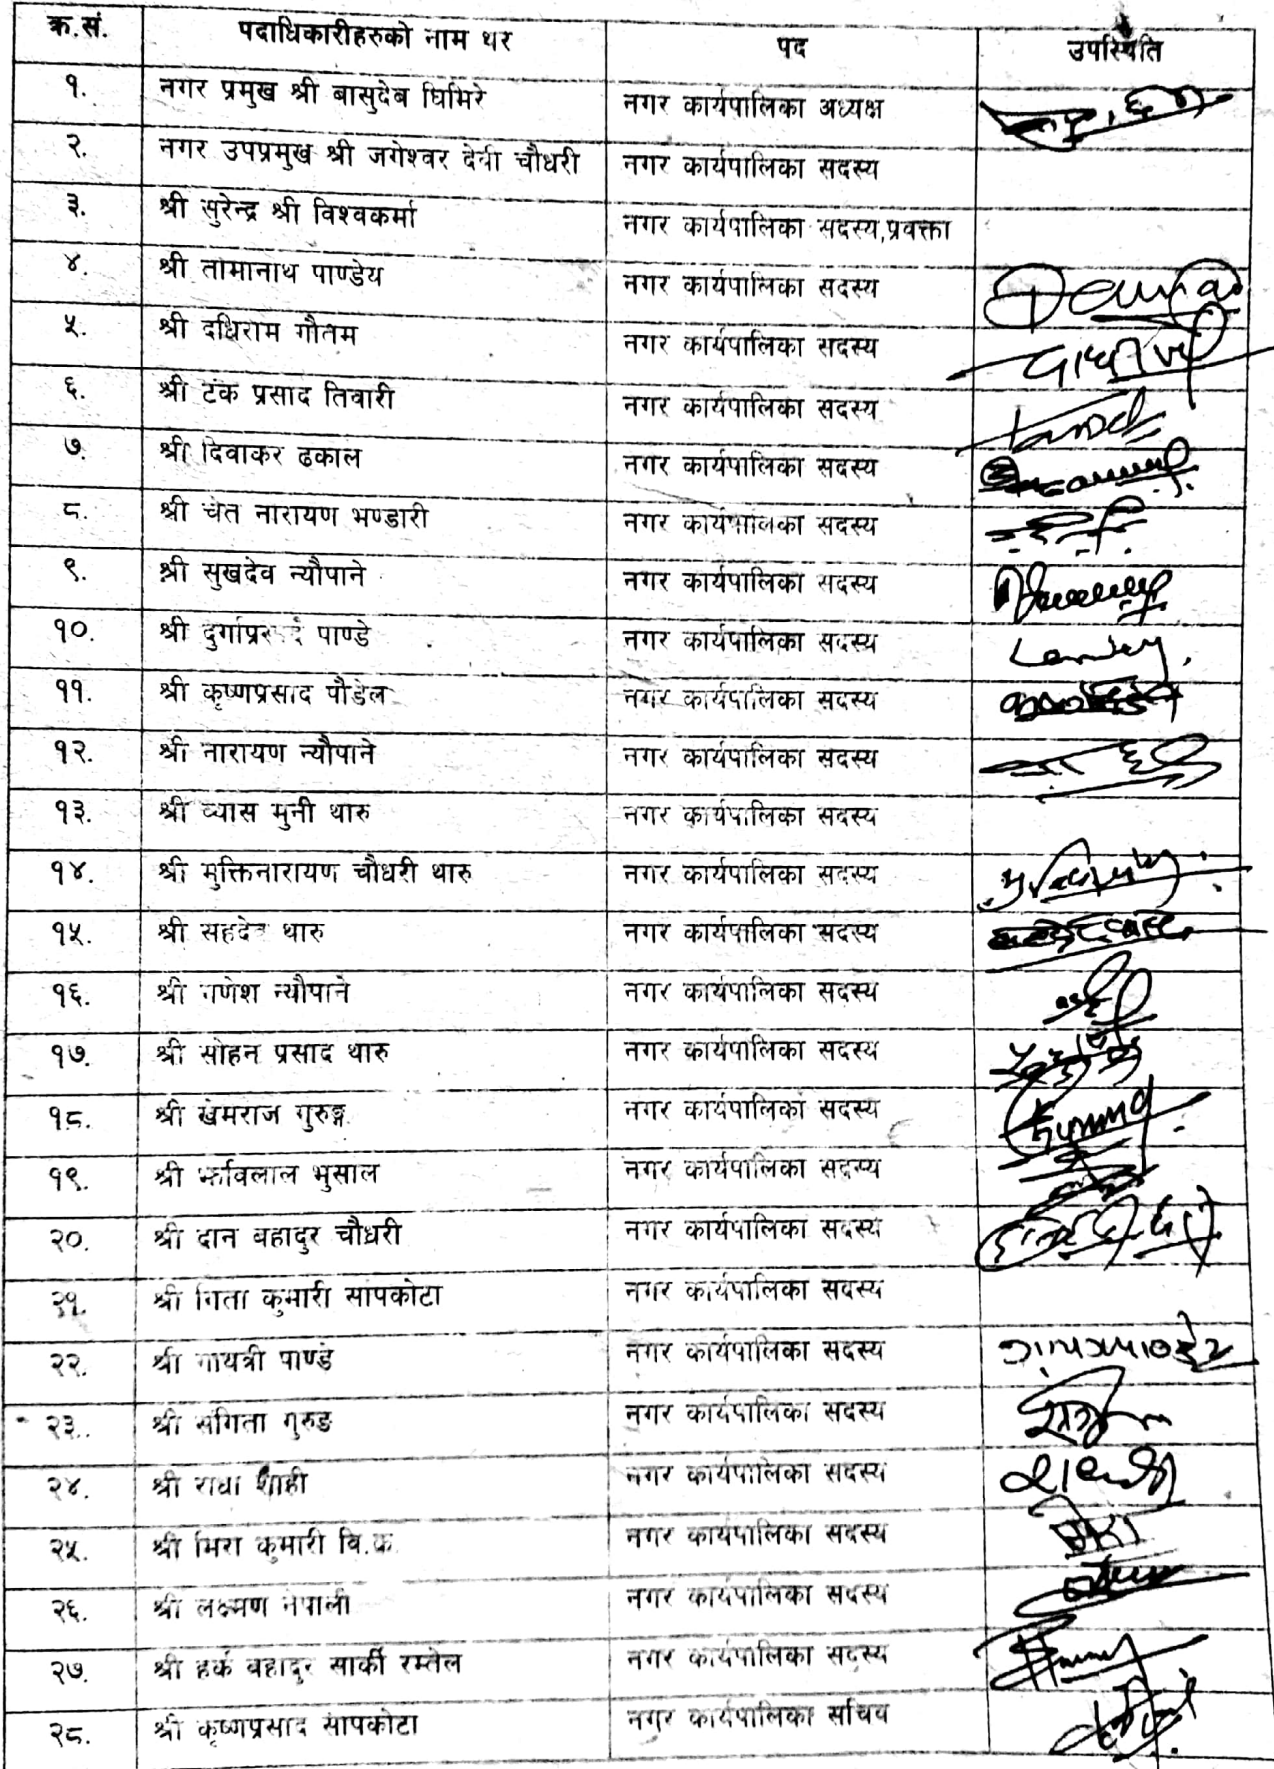 क्र.सं. पदाधिकारीहरुको नाम थर पद उपस्थिति
१. नगर प्रमुख श्री बासुदेब घिमिरे नगर कार्यपालिका अध्यक्ष
२. नगर उपप्रमुख श्री जगेश्वर देवी चौधरी नगर कार्यपालिका सदस्य
३. श्री सुरेन्द्र श्री विश्वकर्मा नगर कार्यपालिका सदस्य,प्रवक्ता
४. श्री तामानाथ पाण्डेय नगर कार्यपालिका सदस्य
५. श्री दधिराम गौतम नगर कार्यपालिका सदस्य
६. श्री टंक प्रसाद तिवारी नगर कार्यपालिका सदस्य
७. श्री दिवाकर ढकाल नगर कार्यपालिका सदस्य
८. श्री चेत नारायण भण्डारी नगर कार्यपालिका सदस्य
९. श्री सुखदेव न्यौपाने नगर कार्यपालिका सदस्य
१०. श्री दुर्गाप्रसाद पाण्डे नगर कार्यपालिका सदस्य
११. श्री कृष्णप्रसाद पौडेल नगर कार्यपालिका सदस्य
१२. श्री नारायण न्यौपाने नगर कार्यपालिका सदस्य
१३. श्री व्यास मुनी थारु नगर कार्यपालिका सदस्य
१४. श्री मुक्तिनारायण चौधरी थारु नगर कार्यपालिका सदस्य
१५. श्री सहदेव थारु नगर कार्यपालिका सदस्य
१६. श्री गणेश न्यौपाने नगर कार्यपालिका सदस्य
१७. श्री सोहन प्रसाद थारु नगर कार्यपालिका सदस्य
१८. श्री खेमराज गुरुङ्ग नगर कार्यपालिका सदस्य
१९. श्री झविलाल भुसाल नगर कार्यपालिका सदस्य
२०. श्री दान बहादुर चौधरी नगर कार्यपालिका सदस्य
२१. श्री गिता कुमारी सापकोटा नगर कार्यपालिका सदस्य
२२. श्री गायत्री पाण्डे नगर कार्यपालिका सदस्य
२३. श्री संगिता गुरुङ नगर कार्यपालिका सदस्य
२४. श्री राधा शाही नगर कार्यपालिका सदस्य
२५. श्री मिरा कुमारी वि.क. नगर कार्यपालिका सदस्य
२६. श्री लक्ष्मण नेपाली नगर कार्यपालिका सदस्य
२७. श्री हर्क बहादुर सार्की रम्तेल नगर कार्यपालिका सदस्य
२८. श्री कृष्णप्रसाद सापकोटा नगर कार्यपालिका सचिव